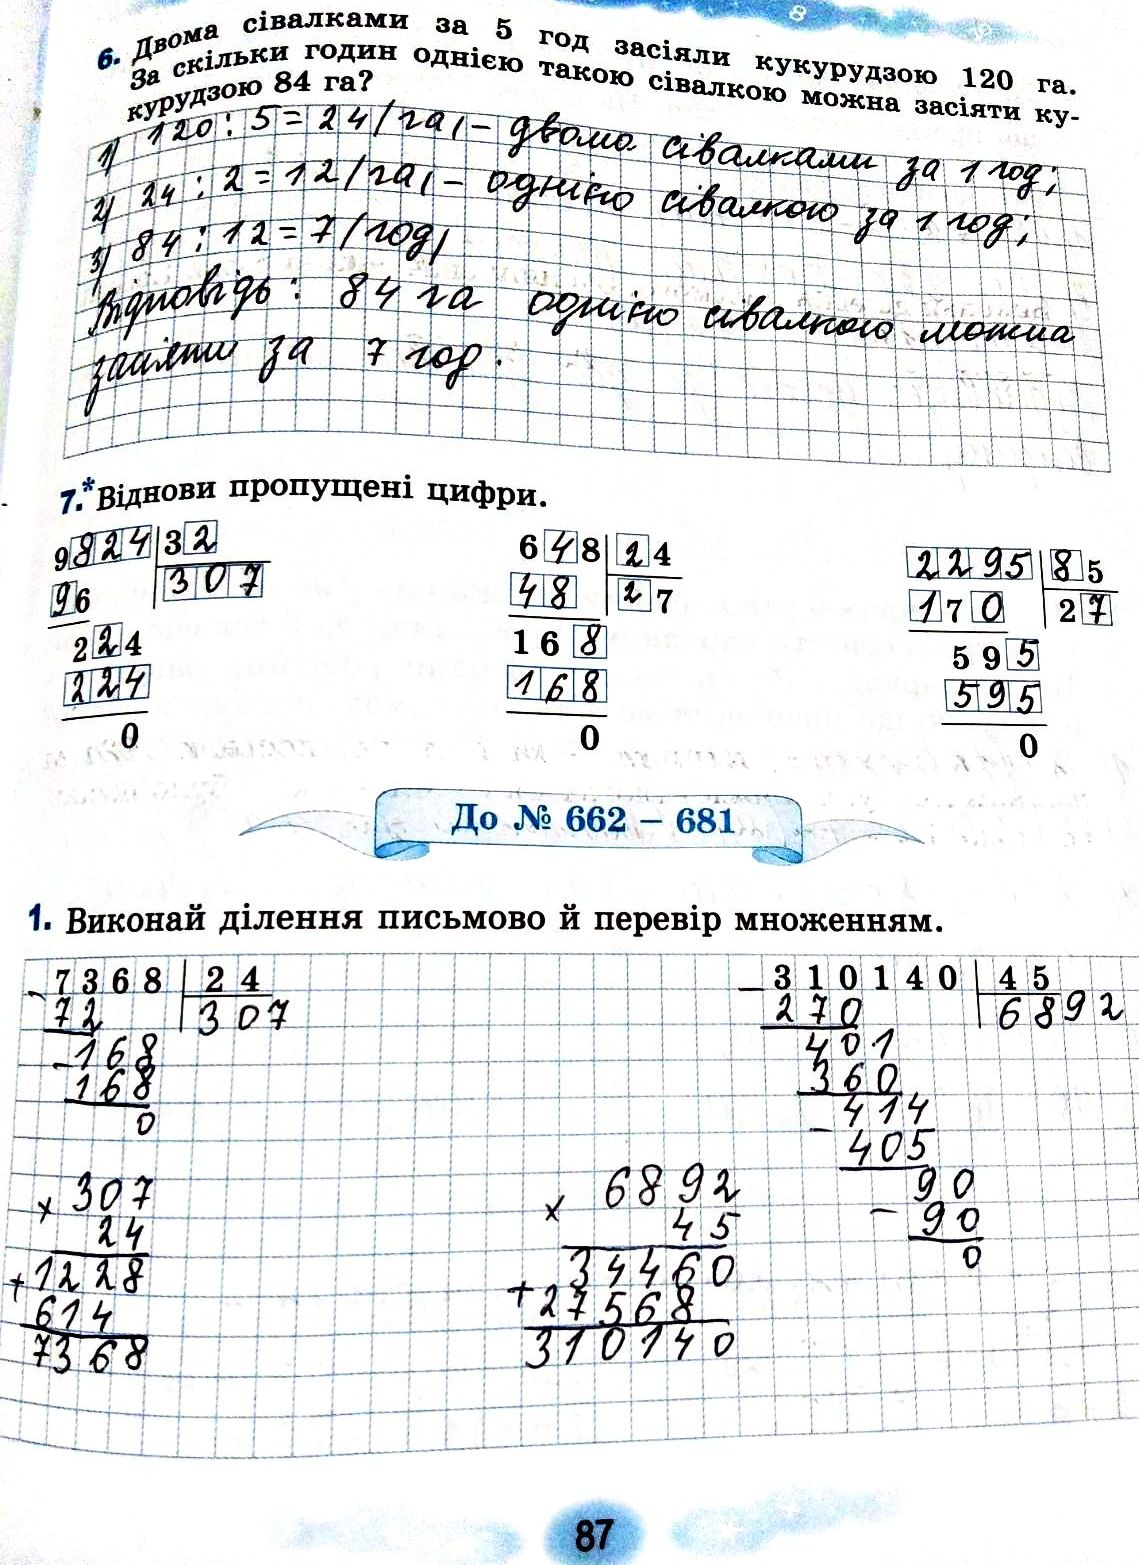 6. Двома сівалками за 5 год засіяли кукурудзою 120 га.
За скільки годин однією такою сівалкою можна засіяти ку-
курудзою 84 га?
1) 120 : 5 = 24 (га) – двома сівалками за 1 год;
2) 24 : 2 = 12 (га) – однією сівалкою за 1 год;
3) 84 : 12 = 7 (год)
Відповідь: 84 га однією сівалкою можна
засіяти за 7 год.
7.* Віднови пропущені цифри.
9824 32
96 307
224
224
0
648 24
48 27
168
168
0
2295 85
170 27
595
595
0
До № 662 – 681
1. Виконай ділення письмово й перевір множенням.
– 7368 24
72 307
– 168
168
0
× 307
24
+ 1228
614
7368
– 310140 45
270 6892
401
360
– 414
405
– 90
90
0
× 6892
45
+ 34460
27568
310140
87